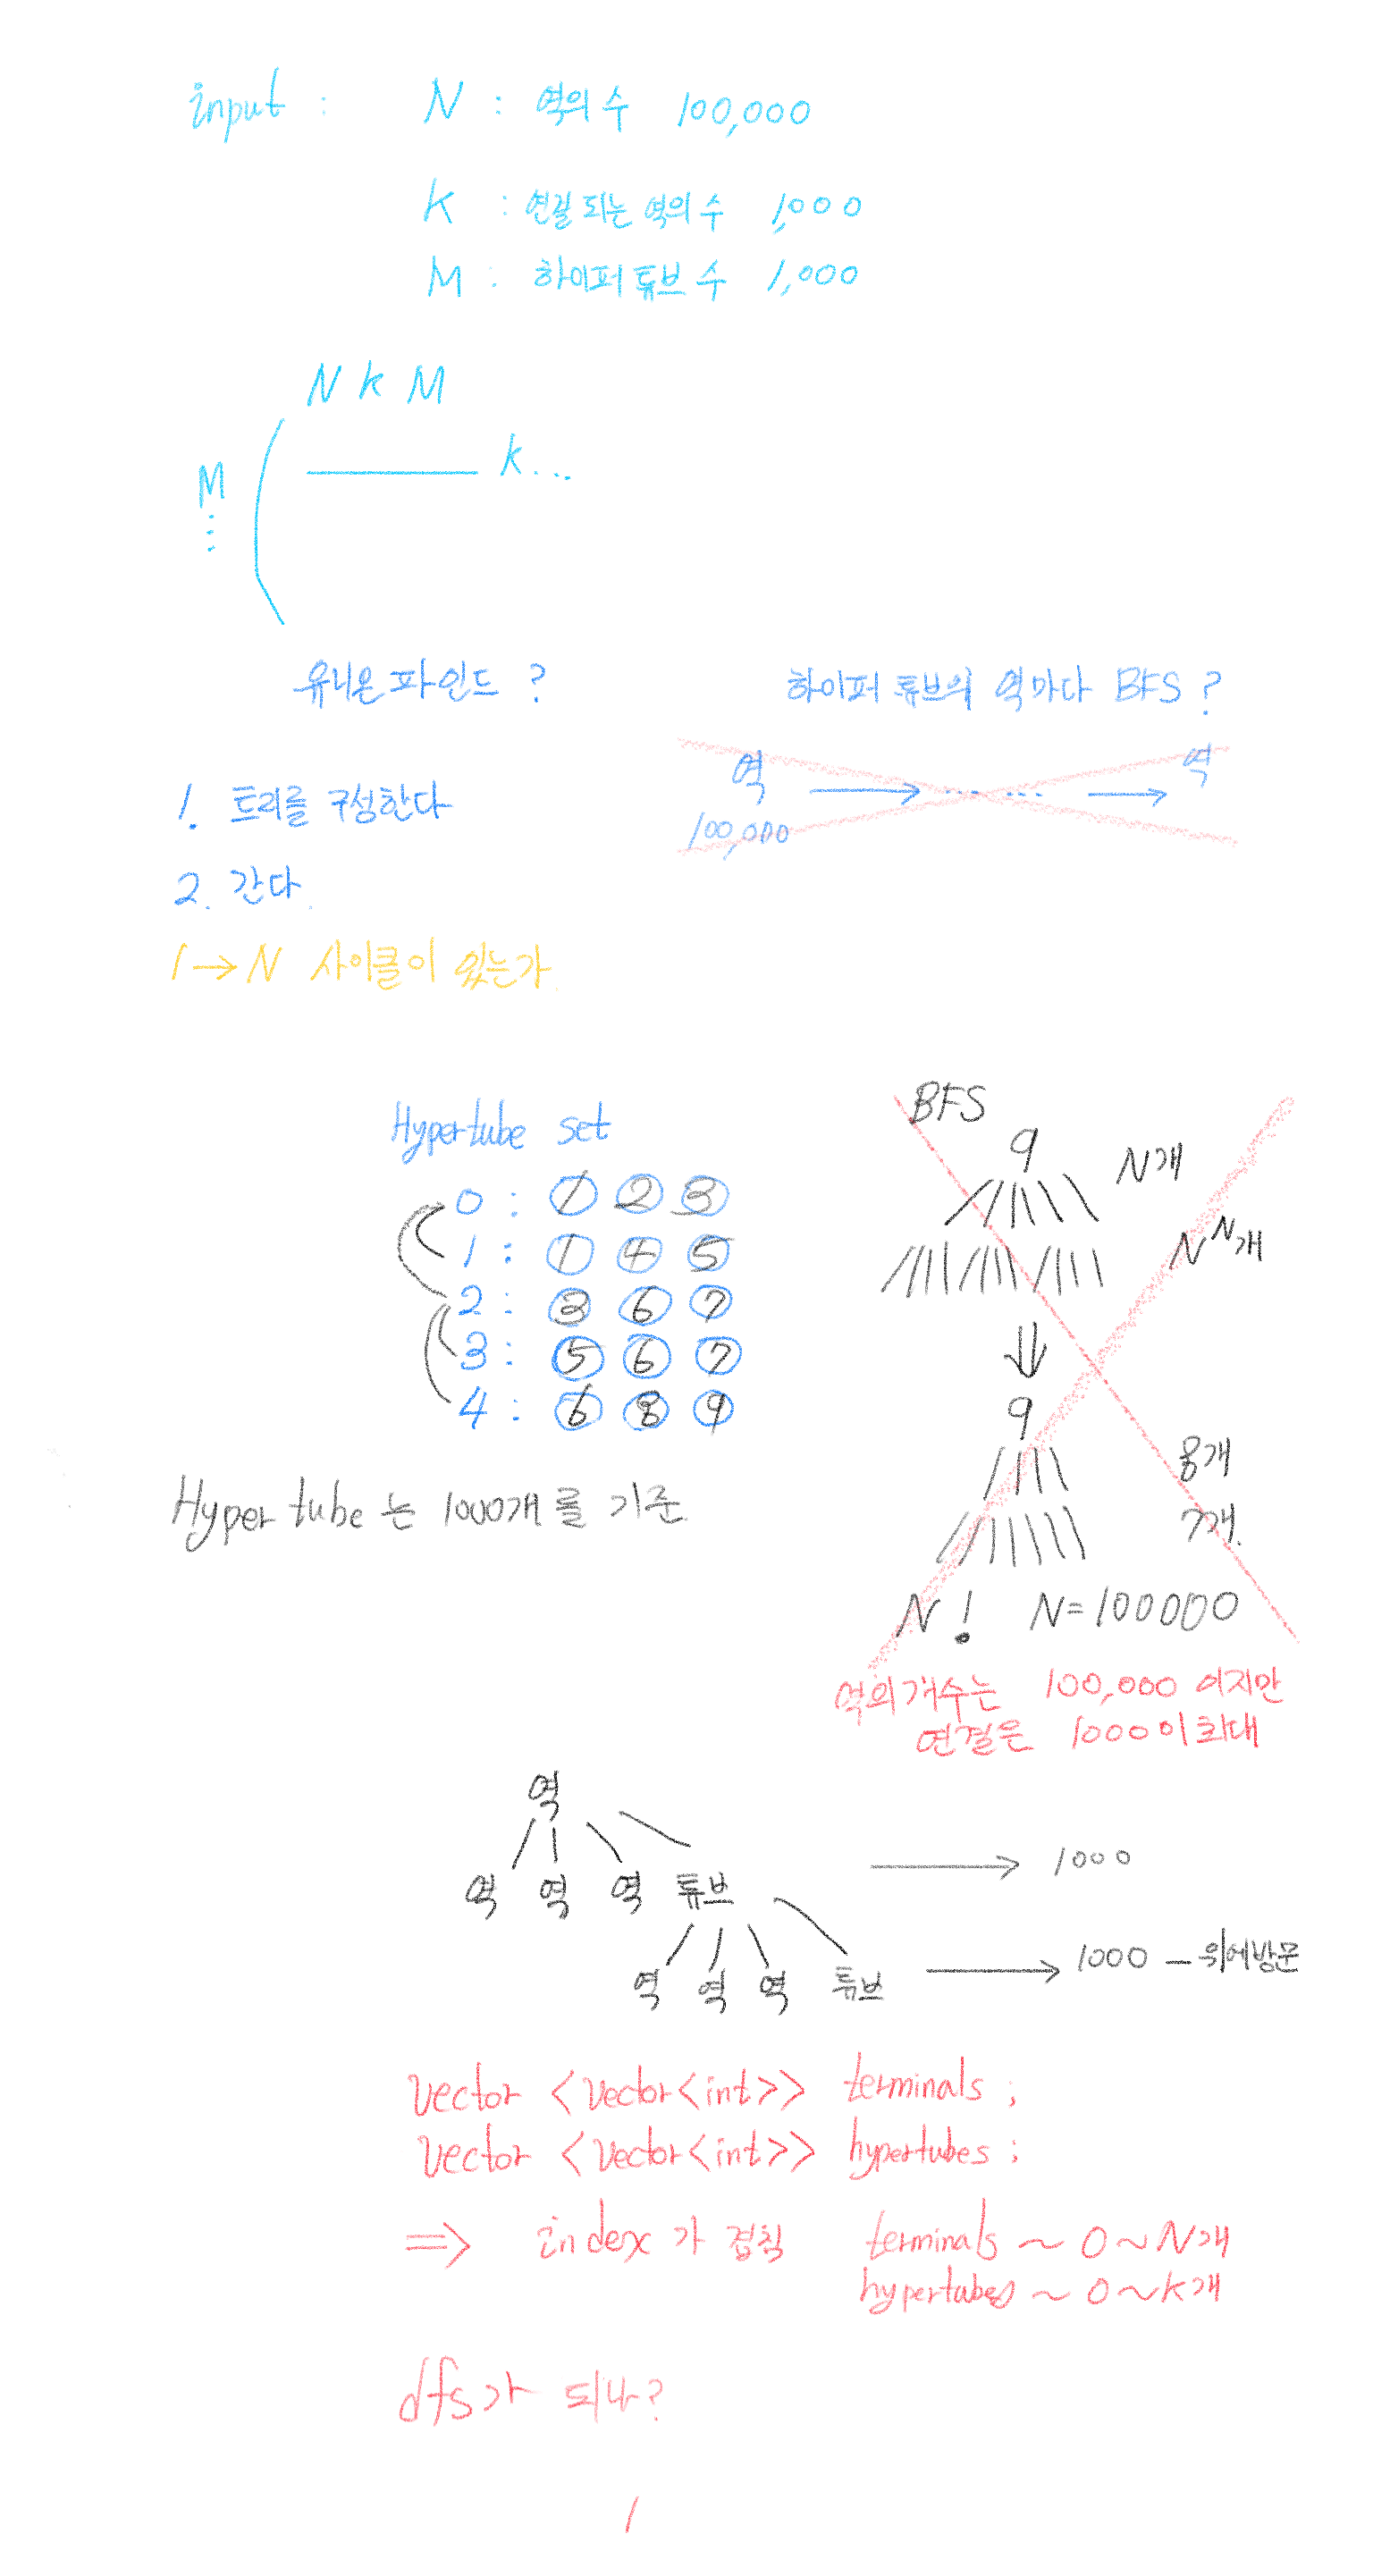 input : N : 역의 수 100,000
K : 연결 되는 역의 수 1,000
M : 하이퍼 튜브 수 1,000
N K M
M ⋮ ( ——— K...
유니온 파인드 ?
하이퍼 튜브의 역마다 BFS ?
역 → ... ... → 역
100,000
1. 트리를 구성한다
2. 간다.
1 → N 사이클이 있는가.
Hypertube set
0 : 1 2 3
1 : 1 4 5
2 : 3 6 7
3 : 5 6 7
4 : 6 8 9
Hyper tube 는 1000개를 기준.
BFS
9
N개
N^N개
⇓
9
8개
7개.
N! N=100000
역의 개수는 100,000 이지만
연결은 1000이 최대
역
역 역 역 튜브 → 1000
역 역 역 튜브 → 1000 - 위에 방문
vector <vector<int>> terminals ;
vector <vector<int>> hypertubes ;
⇒ index 가 겹침 terminals ~ 0 ~ N개
hypertubes ~ 0 ~ K개
dfs가 되나?
1